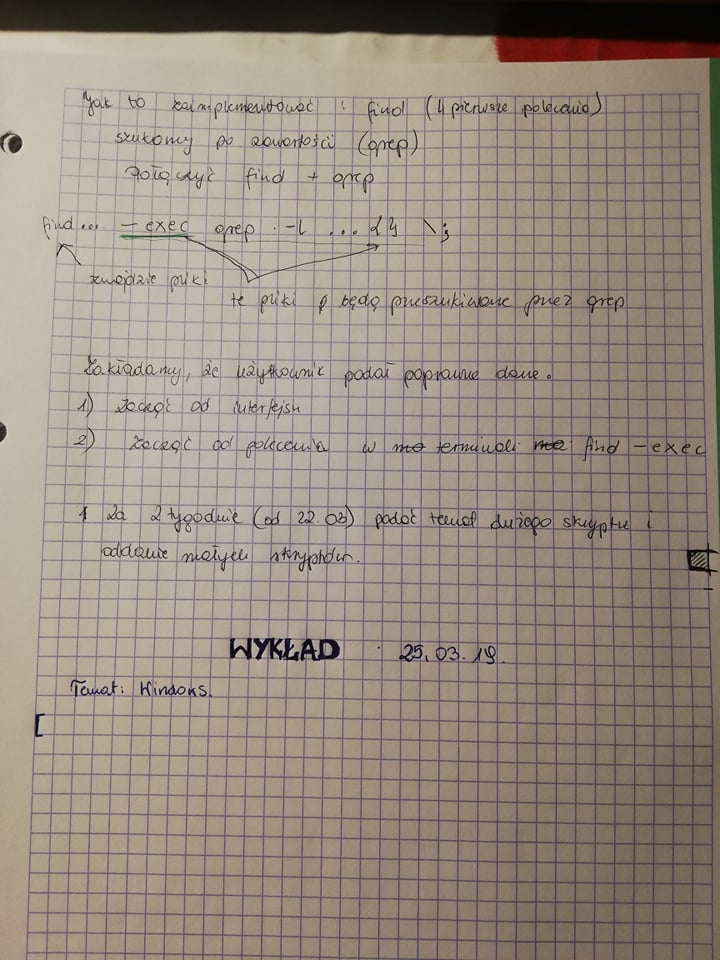 Jak to zaimplementować: find (4 pierwsze polecenia)
szukamy po zawartości (grep)
połączyć find + grep
find... -exec grep -l ... {} \;
znajdzie pliki
te pliki będą przeszukiwane przez grep
Zakładamy, że użytkownik podał poprawne dane.
1) Zacząć od interfejsu
2) Zacząć od polecenia w terminali find -exec
Za 2 tygodnie (od 22.03) podać temat dużego skryptu i
oddanie małych skryptów.
WYKŁAD 25.03.19.
Temat: Windows.